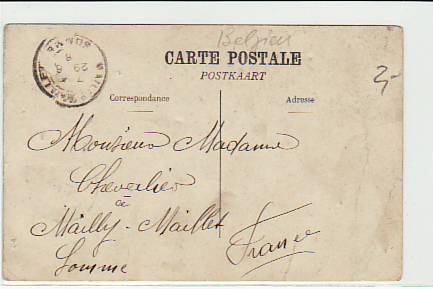 Belgien
CARTE POSTALE
POSTKAART
2,-
Correspondance
Adresse
Monsieur Madame
Chevalier
à
Mailly-Maillet
Somme
France